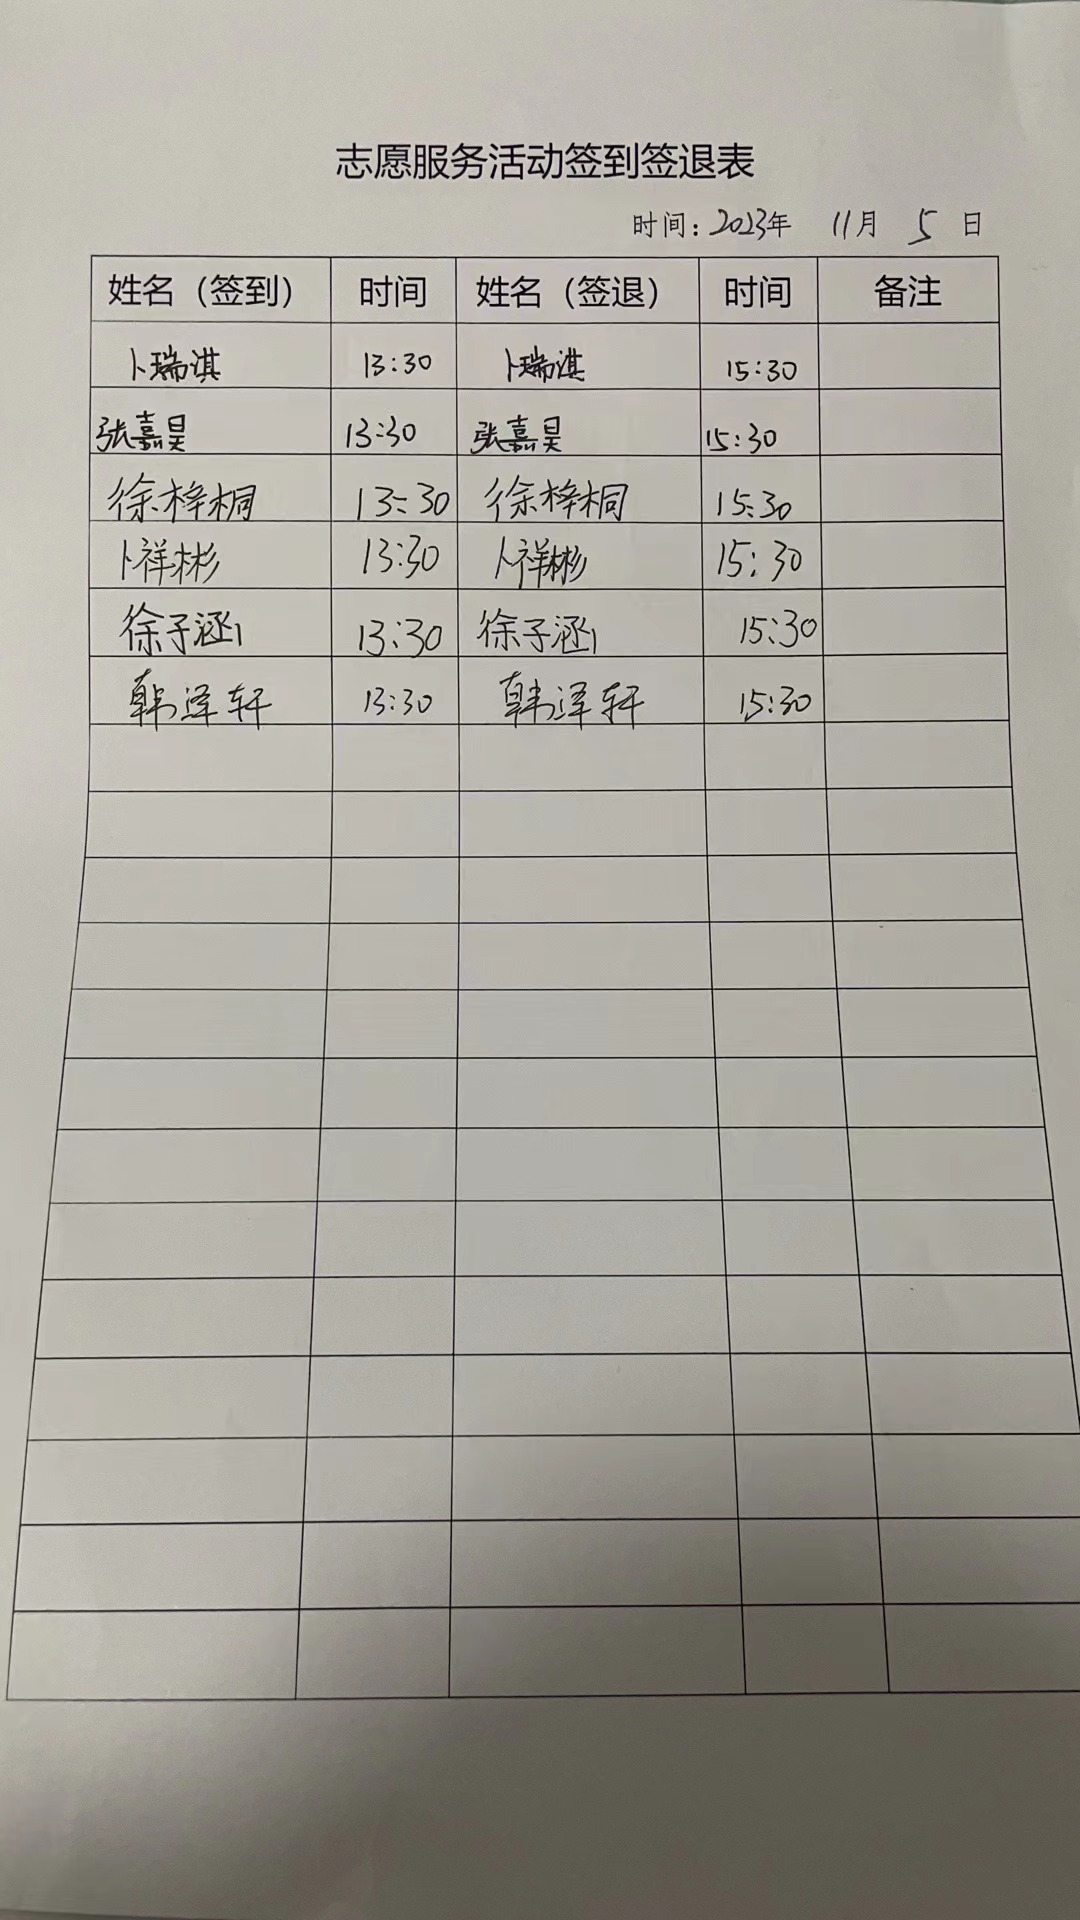 志愿服务活动签到签退表
时间：2023年 11月 5 日
姓名（签到） 时间 姓名（签退） 时间 备注
卜瑞淇 13:30 卜瑞淇 15:30
张嘉昊 13:30 张嘉昊 15:30
徐梓桐 13:30 徐梓桐 15:30
卜祥彬 13:30 卜祥彬 15:30
徐子涵1 13:30 徐子涵1 15:30
韩泽轩 13:30 韩泽轩 15:30